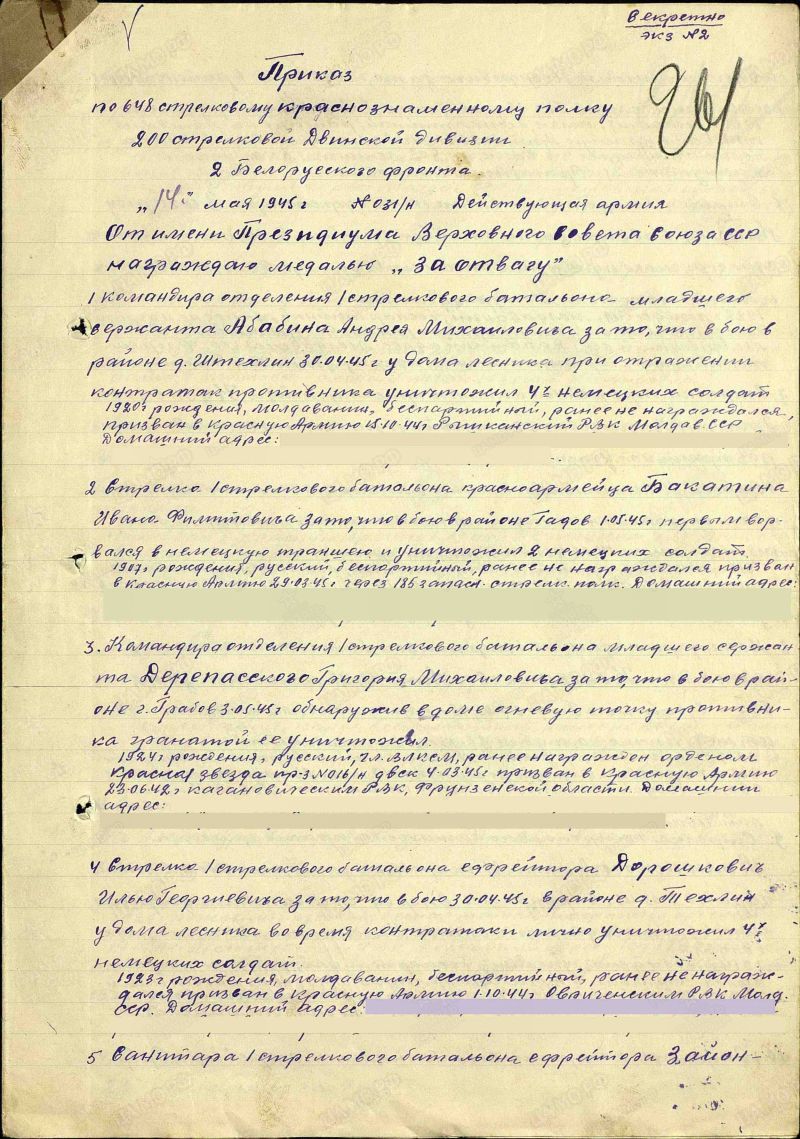 Секретно
экз №2
261
Приказ
по 648 стрелковому краснознаменному полку
200 стрелковой Двинской дивизии
2 Белорусского фронта.
"14" мая 1945г №031/н Действующая армия
От имени Президиума Верховного Совета Союза ССР
награждаю медалью "За отвагу"
1 Командира отделения 1 стрелкового батальона младшего
сержанта Абабина Андрея Михаиловича за то, что в бою в
районе д. Штехлин 30.04.45г у дома лесника при отражении
контратак противника уничтожил 4х немецких солдат
1920г рождения, молдаванин, беспартийный, ранее не награждался,
призван в Красную Армию 15.10.44г Рышканский РВК Молдав. ССР
Домашний адрес:
2 Стрелка 1 стрелкового батальона красноармейца Бакатина
Ивана за то, что в бою в районе Гадов 1.05.45г первым вор-
вался в немецкую траншею и уничтожил 2 немецких солдат.
1907г рождения, русский, беспартийный, ранее не награждался призван
в Красную Армию 29.03.45г через 186 запасн. стрелк. полк. Домашний адрес:
3. Командира отделения 1 стрелкового батальона младшего сержан-
та Дерепасского Григория Михаиловича за то, что в бою в рай-
оне г. Грабов 3.05.45г обнаружив в доме огневую точку противни-
ка гранатой ее уничтожил.
1924г рождения, русский, чл. ВЛКСМ, ранее награжден орденом
Красная звезда пр-з №016/н двск 4.03.45г призван в Красную Армию
23.06.42г Кагановическим РВК, Фрунзенской области. Домашний
адрес:
4 Стрелка 1 стрелкового батальона ефрейтора Дорошкович
Илью Георгиевича за то, что в бою 30.04.45г в районе д. Техлин
у дома лесника во время контратаки лично уничтожил 4х
немецких солдат.
1923г рождения, молдаванин, беспартийный, ранее не награж-
дался призван в Красную Армию 1.10.44г Овриченским РВК Молд.
ССР. Домашний адрес:
5 Санитара 1 стрелкового батальона ефрейтора Зайон-